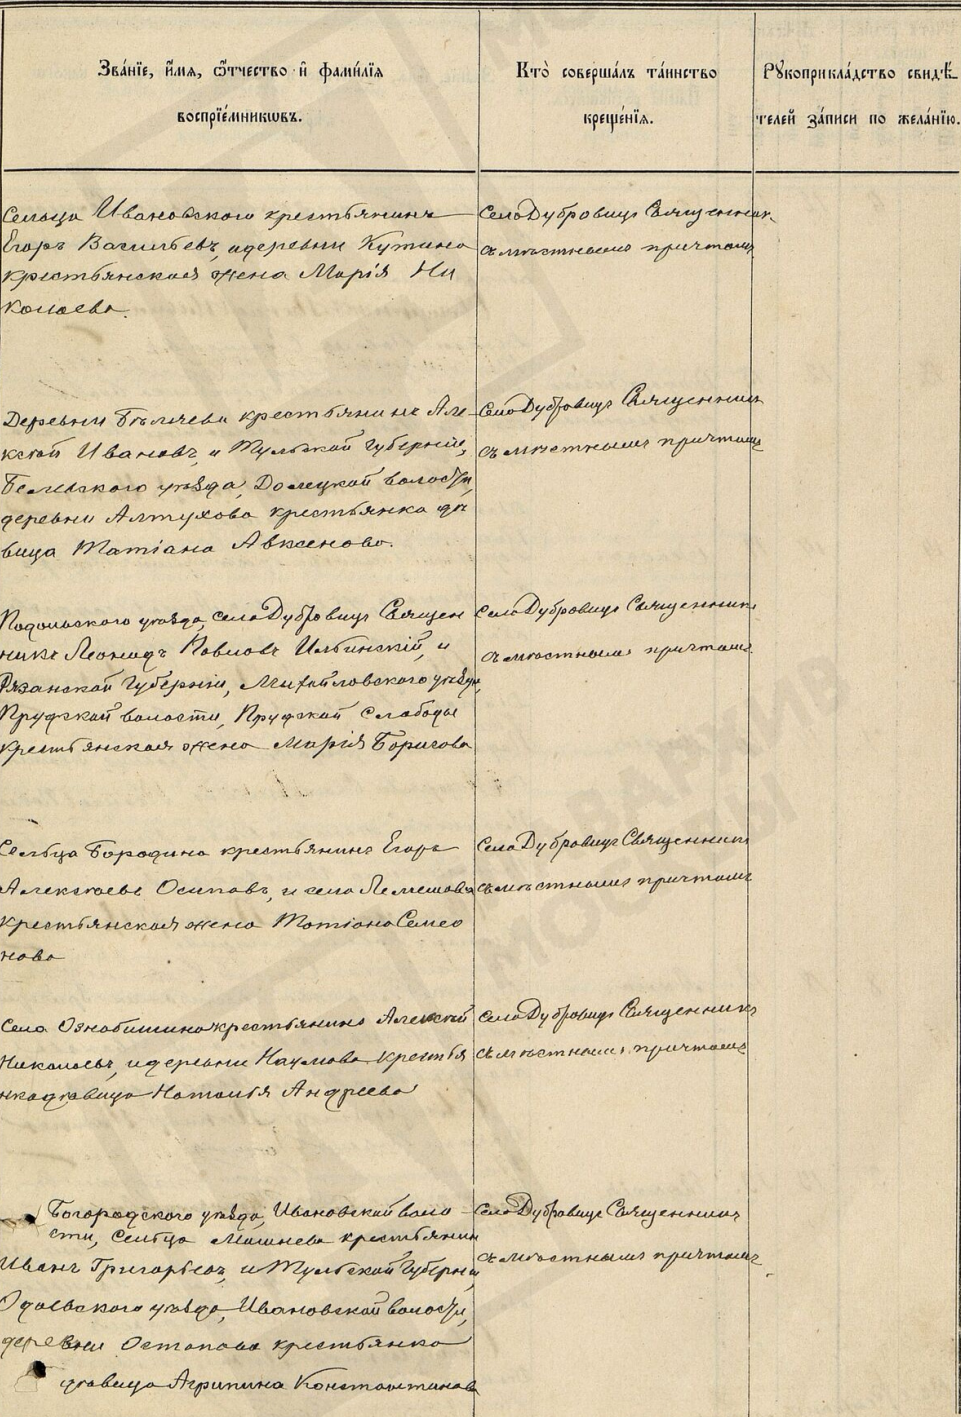 Зва́нїе, и҆́мѧ, ѻ҆́тчество и҆ фами́лїѧ
воспрїе́мникѡвъ.
Кто̀ соверша́лъ та́инство
креще́нїѧ.
Рꙋкоприкла́дство свидѣ́-
телей за́писи по жела́нїю.
Сельца Ивановского крестьянинъ
Егоръ Васильевъ, и деревни Кутьина
крестьянская жена Марія Ни
колаева.
Село Дубровицъ Священник
съ мѣстнымъ причтомъ
Деревни Бѣляева крестьянинъ Але-
ксѣй Ивановъ, и Тульской губерніи,
Бѣлевского уѣзда, Долецкой волости,
деревни Алтухова крестьянка дѣ
вица Татіана Авксенова.
Село Дубровицъ Священникъ
съ мѣстнымъ причтомъ
Подольского уѣзда, села Дубровицъ Священ
никъ Леонидъ Павловъ Ильинскій, и
Рязанской губерніи, Михайловского уѣзда,
Прудской волости, Прудской Слободы
крестьянская жена Марія Борисова
Села Дубровицъ Священникъ
съ мѣстнымъ причтомъ
Сельца Бородина крестьянинъ Егоръ
Алексѣевъ Осиповъ, и села Лемешова
крестьянская жена Татіана Семео
нова
Села Дубровицъ Священникъ
съ мѣстнымъ причтомъ
Села Ознобишина крестьянинъ Алексѣй
Николаевъ, и деревни Наумова крестья
нка дѣвица Наталья Андреева
Села Дубровицъ Священникъ
съ мѣстнымъ причтомъ
Богородского уѣзда, Ивановской воло-
сти, Сельца Машнева крестьянин
Иванъ Григорьевъ, и Тульской губерніи,
Одоевского уѣзда, Ивановской волости,
деревни Остапова крестьянка
дѣвица Агрипина Константинова
Села Дубровицъ Священникъ
съ мѣстнымъ причтомъ